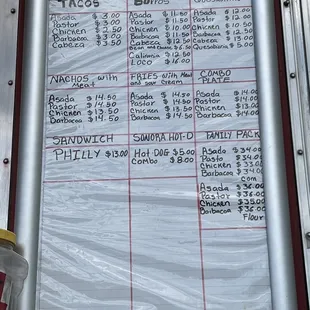 TACOS
Asada $ 3.00
Pastor
Chicken $ 2.50
Barbacoa $ 3.00
Cabeza $ 3.50
Asada $ 11.50
Pastor $ 11.50
Chicken $ 10.50
Barbacoa $ 12.00
Cabeza $ 12.50
Bean and Cheese
California $ 12.50
Loco $ 16.00
Asada $ 12.00
Pastor $ 12.00
Chicken $ 10.50
Barbacoa $ 12.50
Cabeza $ 13.00
Quesabirria $ 5.00
NACHOS with
Meat
Asada $ 14.50
Pastor $ 14.50
Chicken $ 13.50
Barbacoa $ 14.50
FRIES with Meat
and sour cream
Asada $ 14.50
Pastor $ 14.50
Chicken $ 13.50
Barbacoa $ 14.50
COMBO
PLATE
Asada $ 14.00
Pastor $ 14.00
Chicken $ 13.00
Barbacoa $ 14.00
SANDWICH
PHILLY $13.00
SONORA HOT-D
Hot DOG $5.00
Combo $8.00
FAMILY PACK
Asada $34.00
Pasto $34.00
Chicken $33.00
Barbacoa $34.00
Corn
Asada $36.00
Pastor $36.00
Chicken $35.00
Barbacoa $36.00
Flour